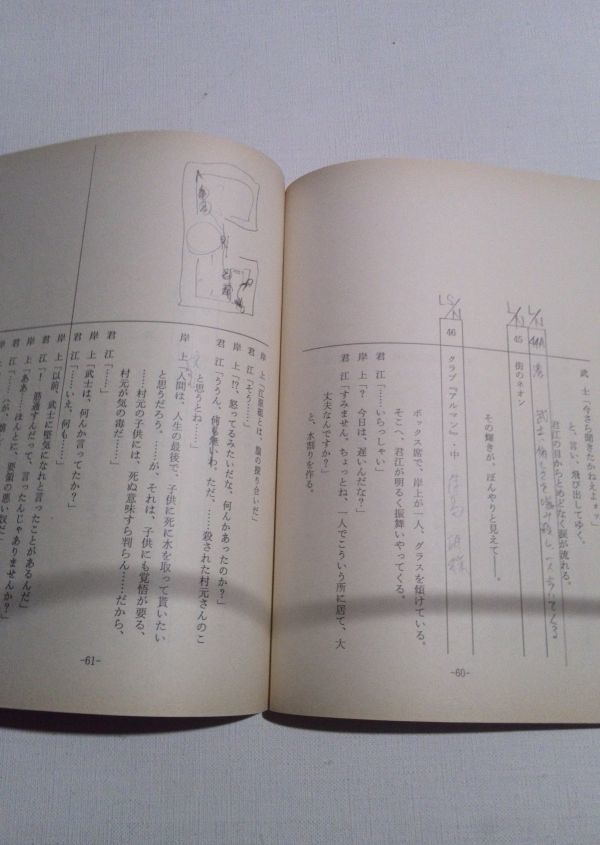 武 士「今さら聞きたかねえよォッ」
と、言い、飛び出してゆく。
君江の目からとめどなく涙が流れる。
44A
45 街のネオン
その輝きが、ぼんやりと見えて――。
46 クラブ『アルマン』・中
ボックス席で、岸上が一人、グラスを傾けている。
そこへ、君江が明るく振舞いやってくる。
君 江「……いらっしゃい」
岸 上「? 今日は、遅いんだな?」
君 江「すみません、ちょっとね、一人でこういう所に居て、大
丈夫なんですか?」
と、水割りを作る。
-60-
岸 上「江原組とは、腹の探り合いだ」
君 江「そう……」
岸 上「!?、怒ってるみたいだな、何んかあったのか?」
君 江「ううん、何も無いわ、ただ、……殺された村元さんのこ
と思うとね……」
岸 上「人間は、人生の最後で、子供に死に水を取って貰いたい
と思うだろう。……が、それは、子供にも覚悟が要る、
……村元の子供には、死ぬ意味すら判らん……だから、
村元が気の毒だ……」
君 江「……」
岸 上「武士は、何んか言ってたか?」
君 江「……いえ、何も……」
岸 上「以前、武士に堅気になれと言ったことがあるんだ」
君 江「! 筋通すんだって、言ったんじゃありませんか?」
岸 上「ああ、ほんとに、要領の悪い奴だ」
-61-